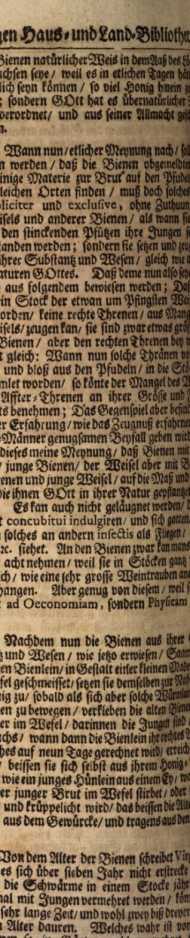 gen Haus- und Land-Bibliothe
Bienen natürlicher Weis in dem Aaß des
achsen seye / weil es in etlichen Tagen
lich seyn können / so viel Honig hinein
; sondern GOtt hat es übernatürlicher
verordnet / und aus seiner Allmacht
n.
Wann nun / etlicher Meynung nach /
n werden / daß die Bienen obgemeldte
einige Materie zur Brut auf den
leichen Orten finden / muß doch solches
liciter und exclusivè, ohne Zuthuung
isels und anderer Bienen / als wann
den stinckenden Pfützen ihre Jungen
anden werden; sondern sie setzen und
hrer Substantz und Wesen / gleich wie
aturen GOttes. Daß deme nun also seye
aus folgendem bewiesen werden; Daß
in Stock der etwan um Pfingsten
orden / keine rechte Threnen / aus Mangel
isels / zeugen kan / sie sind zwar etwas
Bienen / aber den rechten Threnen bey
t gleich: Wann nun solche Threnen
und bloß aus den Pfudeln / in die
mlet worden / so könte der Mangel des
Affter-Threnen an ihrer Grösse und
ts benehmen; Das Gegenspiel aber
er Erfahrung / wie das Zeugnuß
-Männer genugsamen Beyfall geben
dieses meine Meynung / daß Bienen
/ junge Bienen / der Weisel aber mit
enen und junge Weisel / auf die Maß und
ie ihnen GOtt in ihrer Natur gepflantzt
Es kan auch nicht geläugnet werden /
t concubitui indulgiren / und sich
solches an andern insectis als Fliegen /
rc. siehet. An den Bienen zwar kan man
acht nehmen / weil sie in Stöcken gantz
ch / wie eine sehr grosse Weintrauben
hangen. Aber genug von diesem / weil
t ad Oeconomiam, sondern Physicam
Nachdem nun die Bienen aus ihrer
tz und Wesen / wie jetzo erwiesen /
en Bienlein / in Gestalt einer kleinen
el geschmeisset / setzen sie demselben zur
ig zu / sobald als sich aber solche
en zu bewegen / verkleiben die alten Bienen
er im Wefel / darinnen die Jungen sind
chs / wann dann die Bienlein ihr rechtes
hes auf neun Tage gerechnet wird / erreicht
/ beissen sie sich selbst aus ihrem Honig-
wie ein junges Hünlein aus einem Ey /
er junger Brut im Wefel stirbet / oder
und krüppelicht wird / das beissen die Alten
aus dem Gewürcke / und tragens aus dem
Von dem Alter der Bienen schreibet
es sich über sieben Jahr nicht erstrecke
die Schwärme in einem Stocke
mal mit Jungen vermehret werden /
sehr lange Zeit / und wohl zwey biß drey
Alter dauren. Welches wahr ist